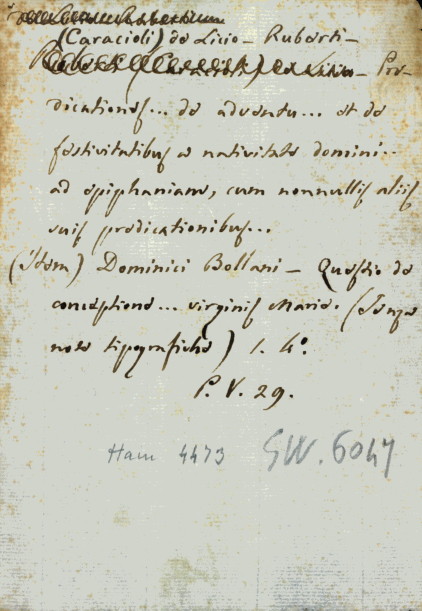 (Caracioli) de Licio – Ruberti –
Pre-
dicationes... de adventu... et de
festivitatibus a nativitate domini..
ad epiphaniam, cum nonnullis aliis
suis predicationibus...
(Idem) Dominici Bollani – Questio de
conceptione... virginis Marie. (Senza
note tipografiche) 1. 4º.
P. V. 29.
Hain 4473 GW. 6047